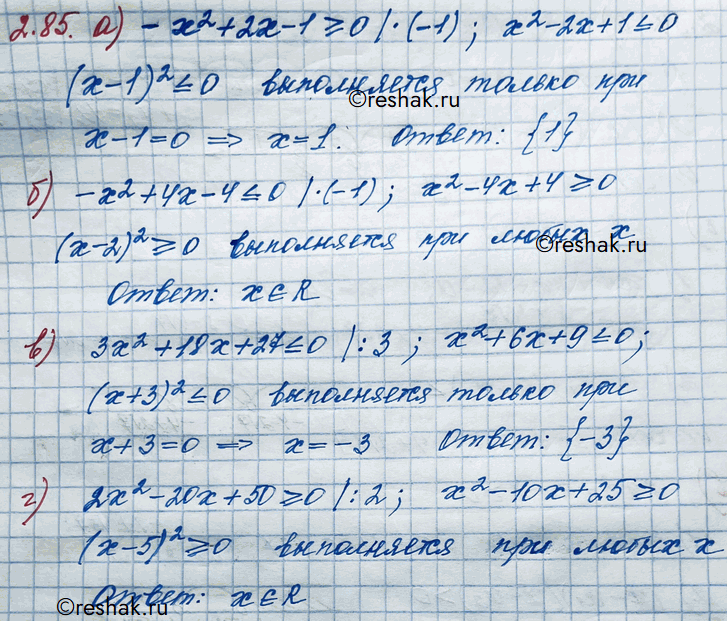 2.85. а) -x²+2x-1≥0 |·(-1); x²-2x+1≤0
(x-1)²≤0 выполняется только при
©reshak.ru
x-1=0 ⟹ x=1. Ответ: {1}
б) -x²+4x-4≤0 |·(-1); x²-4x+4≥0
(x-2)²≥0 выполняется при любых x
©reshak.ru
Ответ: x∈R
в) 3x²+18x+27≤0 |:3; x²+6x+9≤0;
(x+3)²≤0 выполняется только при
x+3=0 ⟹ x=-3 Ответ: {-3}
г) 2x²-20x+50≥0 |:2; x²-10x+25≥0
(x-5)²≥0 выполняется при любых x
Ответ: x∈R
©reshak.ru